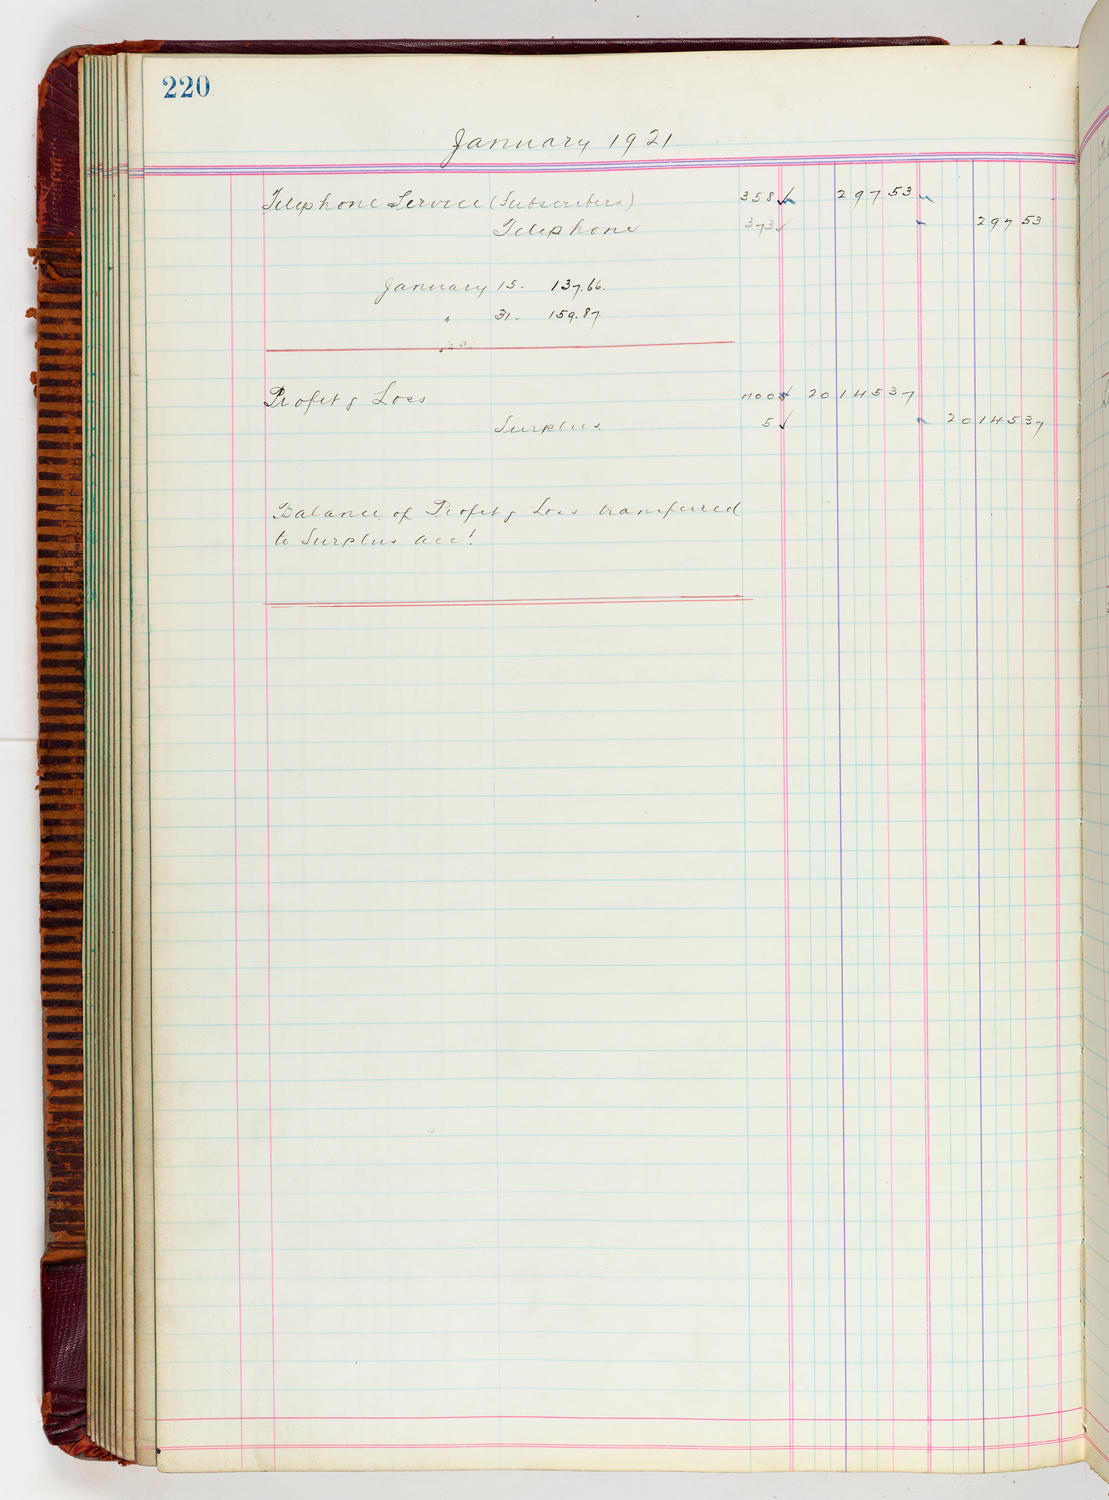 220
January 1921
Telephone Service (Subscribers) 358 ✓ 297 53
Telephone 373 ✓ 297 53
January 15. 137.66.
" 31. 159.87
Profit & Loss ✓ 20145 37
Surplus 5 ✓ 20145 37
Balance of Profit & Loss transferred
to Surplus acc!